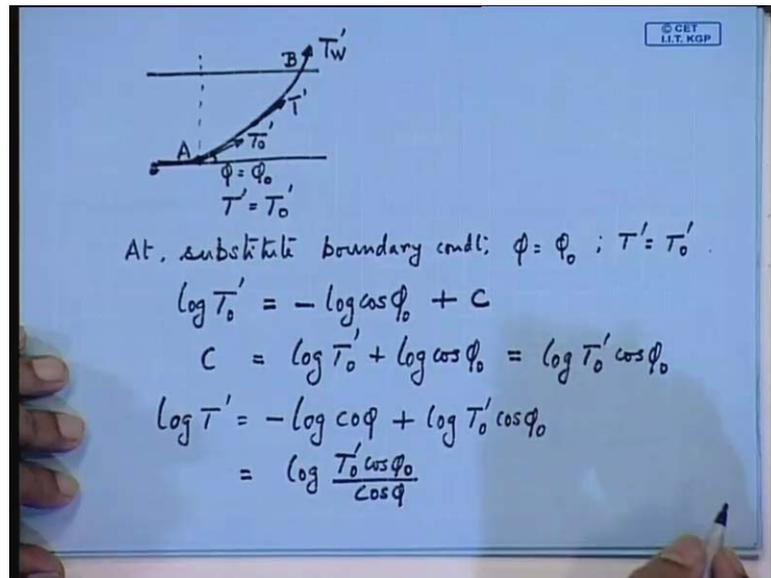 © CET
I.I.T. KGP
B Tw'
T'
A To'
φ = φ₀
T' = T₀'
At, substitute boundary condt; φ = φ₀ ; T' = T₀'.
log T₀' = - log cos φ₀ + C
C = log T₀' + log cos φ₀ = log T₀' cos φ₀
log T' = - log coφ + log T₀' cos φ₀
= log T₀' cos φ₀ / cos φ